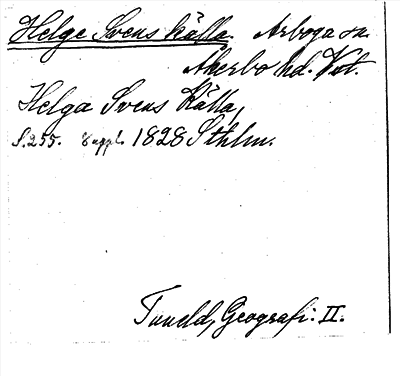 Helge Svens källa. Arboga sn.
Åkerbo hd. Vstm.
Helga Svens Källa,
S. 255. 8 uppl. 1828 Sthlm.
Tuneld, Geografi: II.